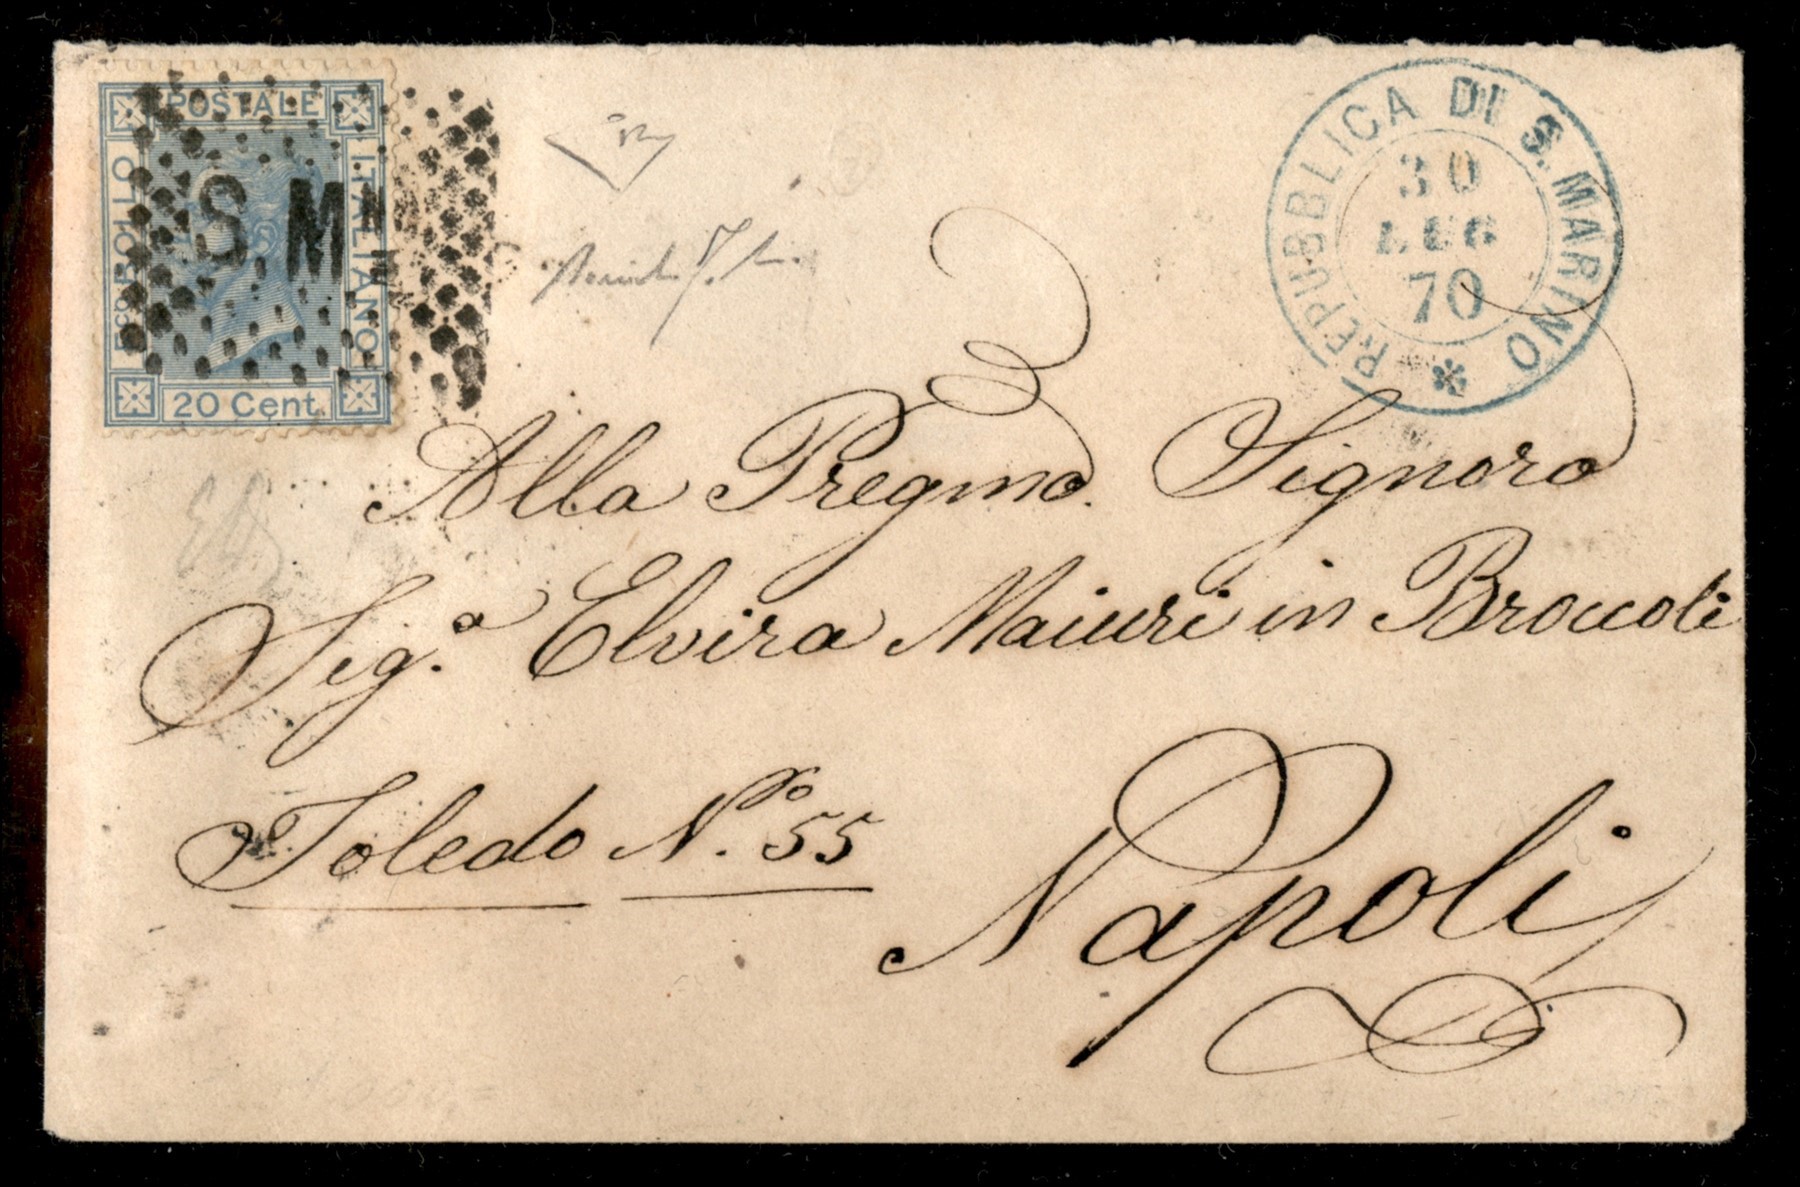 POSTALE
FCO BOLLO
ITALIANO
20 Cent.
S M
REPUBBLICA DI S. MARINO
30
LUG
70
Alla Pregma. Signora
Sig.a Elvira Maiuri in Broccoli
Toledo No. 55
Napoli